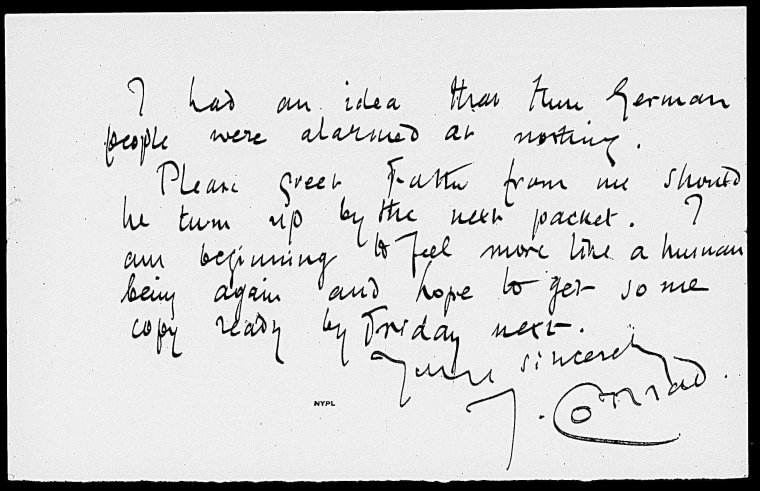 I had an idea that these German
people were alarmed at nothing.
Please greet Father from me should
he turn up by the next packet. I
am beginning to feel more like a human
being again and hope to get some
copy ready by Friday next.
Yours sincerely
J. Conrad.
NYPL